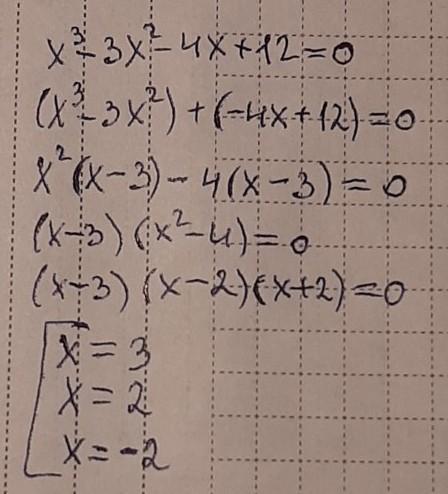 x³-3x²-4x+12=0
(x³-3x²)+(-4x+12)=0
x²(x-3)-4(x-3)=0
(x-3)(x²-4)=0
(x-3)(x-2)(x+2)=0
x=3
x=2
x=-2